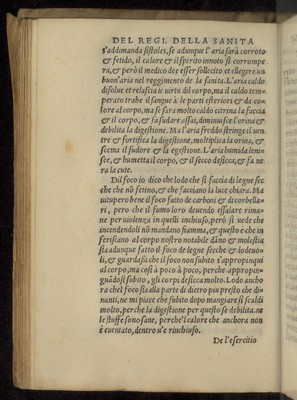 DEL REGI. DELLA SANITA
s'addimanda sistoles, se adunque l'aria sarà corroto
& fetido, il calore & il spirito innoto si corrompe
ra, & però il medico dee esser sollecito et eleggere un
buon'aria nel reggimento de la sanita. L'aria caldo
disolue et relascia le uirtu dil corpo, ma il caldo tem-
perato trahe il sangue à le parti esteriori & da co-
lore al corpo, ma se sara molto caldo citrina la faccia
& il corpo, & fa sudare assai, diminuisce l'orina &
debilita la digestione. Ma l'aria freddo stringe il uen
tre & fortifica la digestione, moltiplica la orina, &
scema il sudore & la egestione. L'aria humida leni-
sce, & humetta il corpo, & il secco desicca, & fa ne
ra la cute.
Dil foco io dico che lodo che si faccia di legne sec
che che nō fetino, & che facciano la luce chiara. Ma
uitupero bene il foco fatto de carboni & di corbella-
ri, pero che il fumo loro deuendo essalare rima-
ne per uiolenza in quelli inchiuso, però si uede che
incendendoli nō mandano fiamma, & questo è che in
feriscano al corpo nostro notabile dāno & molestia
sia adunque fatto il foco de legne secche & lodeuo-
li, & guardasi che il foco non subito s'appropinqui
al corpo, ma così à poco à poco, perche appropin-
guādosi subito, gli corpi desicca molto. Lodo ancho
ra chel foco sia alla parte di dietro piu presto che di-
nanti, ne mi piace che subito dopo mangiare si scaldi
molto, perche la digestione per questo se debilita. ne
le stuffe sono sane, perche'l calore che anchora non
è euentato, dentro u'e rinchiuso.
De l'esercitio